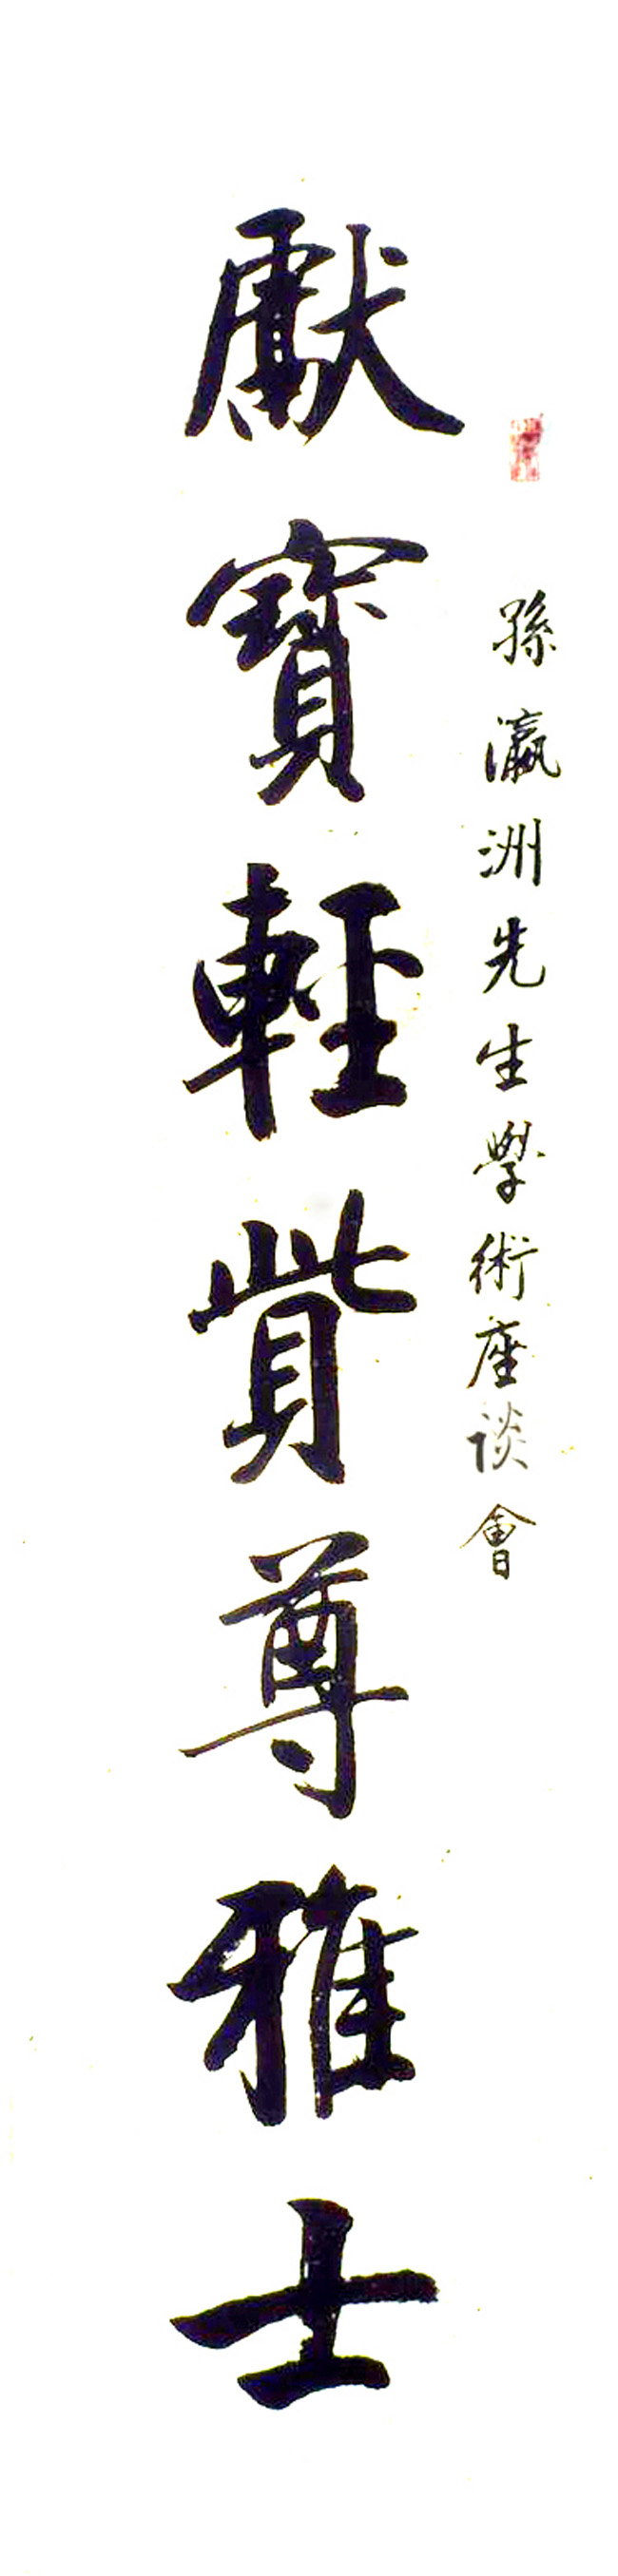 孫瀛洲先生學術座谈會
獻寶輕貲尊雅士